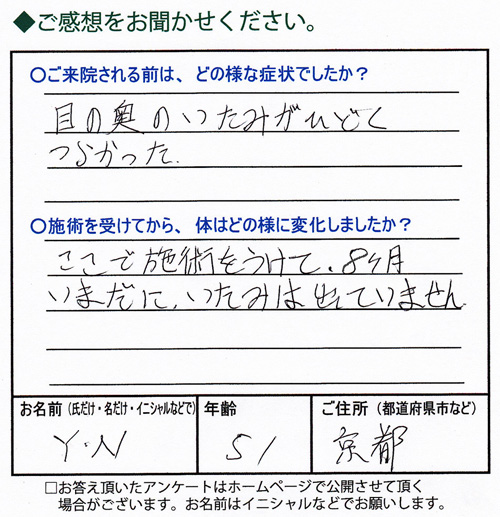 ◆ご感想をお聞かせください。
〇ご来院される前は、どの様な症状でしたか？
目の奥のいたみがひどく
つらかった.
〇施術を受けてから、体はどの様に変化しましたか？
ここで施術をうけて、8ヶ月
いまだに、いたみは出ていません.
お名前（氏だけ・名だけ・イニシャルなどで） 年齢 ご住所（都道府県市など）
Y・N 51 京都
□お答え頂いたアンケートはホームページで公開させて頂く
場合がございます。お名前はイニシャルなどでお願いします。